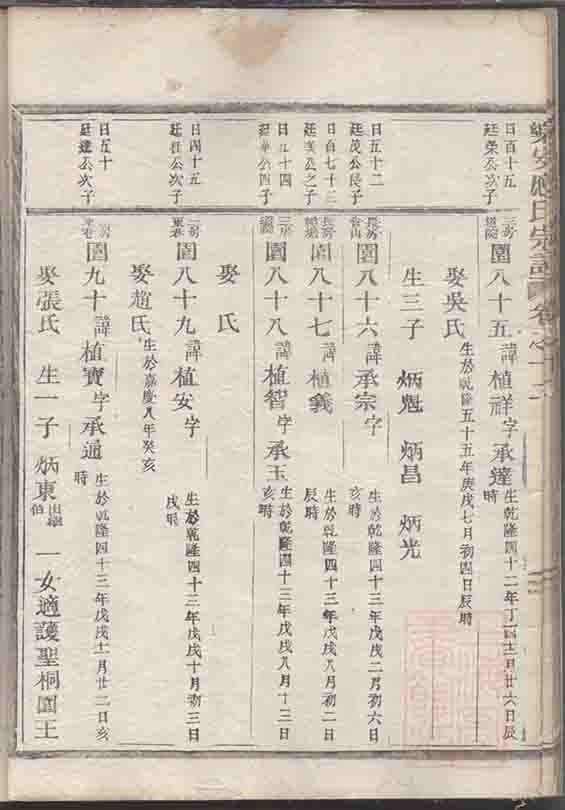 樂安應氏宗譜 卷之十
日百十五
廷榮公次子
三房
圍八十五 諱植祥 字承達 生於乾隆四十二年丁酉十二月廿六日辰時
娶吳氏 生於乾隆五十五年庚戌七月初四日辰時
生三子 炳魁 炳昌 炳光
日五十二
廷茂公長子
長房
圍八十六 諱承宗 字 生於乾隆四十三年戊戌二月初六日亥時
日百七十三
公之子
長房
圍八十七 諱植義 生於乾隆四十三年戊戌八月初二日辰時
日五十四
公四子
三房
圍八十八 諱植智 字承玉 生於乾隆四十三年戊戌八月十三日亥時
娶 氏
日四十五
廷 公次子
三房
東巷
圍八十九 諱植安 字 生於乾隆四十三年戊戌十月初三日戌時
娶趙氏 生於嘉慶八年癸亥
日五十
廷達公次子
房
東巷
圍九十 諱植寶 字承通 生於乾隆四十三年戊戌十一月廿二日亥時
娶張氏 生一子 炳東 出繼伯 一女適護聖桐園王